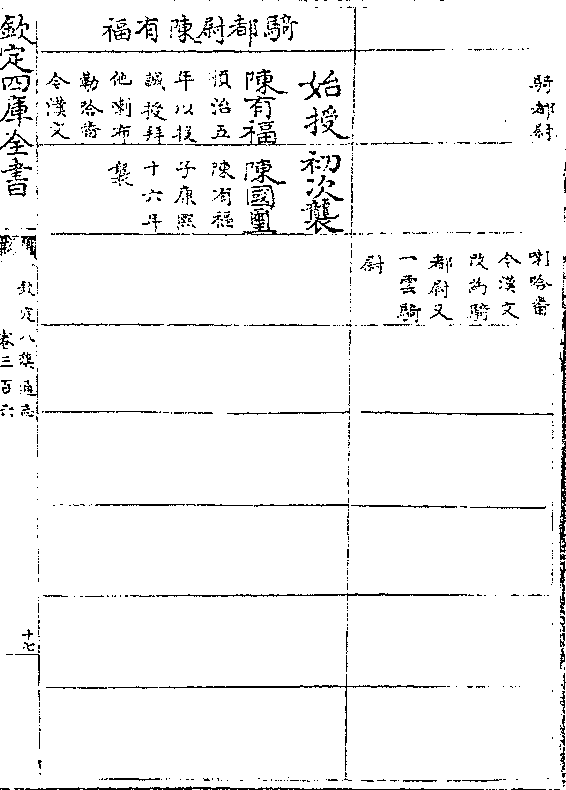 騎都尉
喇哈番
今漢文
改為騎
都尉又
一雲騎
尉
騎都尉陳有福
始授
陳有福
順治五
年以投
誠授拜
他喇布
勒哈番
今漢文
初次襲
陳國璽
陳有福
子康熙
十六年
襲
欽定四庫全書
欽定八旗通志
卷三百六
十七